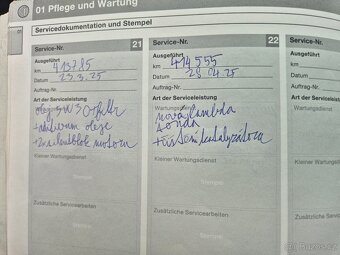 01 Pflege und Wartung
Servicedokumentation und Stempel
Service-Nr. 21
Ausgeführt
km 413785
Datum 23.3.25
Auftrag-Nr.
Art der Serviceleistung
olej 5W30 filtr
+ aditivum oleje
motoru
Kleiner Wartungsdienst
Stempel
Zusätzliche Servicearbeiten
Stempel
Service-Nr. 22
Ausgeführt
km 414555
Datum 28.04.25
Auftrag-Nr.
Art der Serviceleistung
Wartungsdienst
nová lambda
sonda
katalyzátoru
Kleiner Wartungsdienst
Stempel
Zusätzliche Servicearbeiten
Stempel
Service-Nr.
Ausgeführt
km
Datum
Auftrag-Nr.
Art der Serviceleistung
Wartungsdienst
Kleiner Wartungsdienst
Zusätzliche Serv